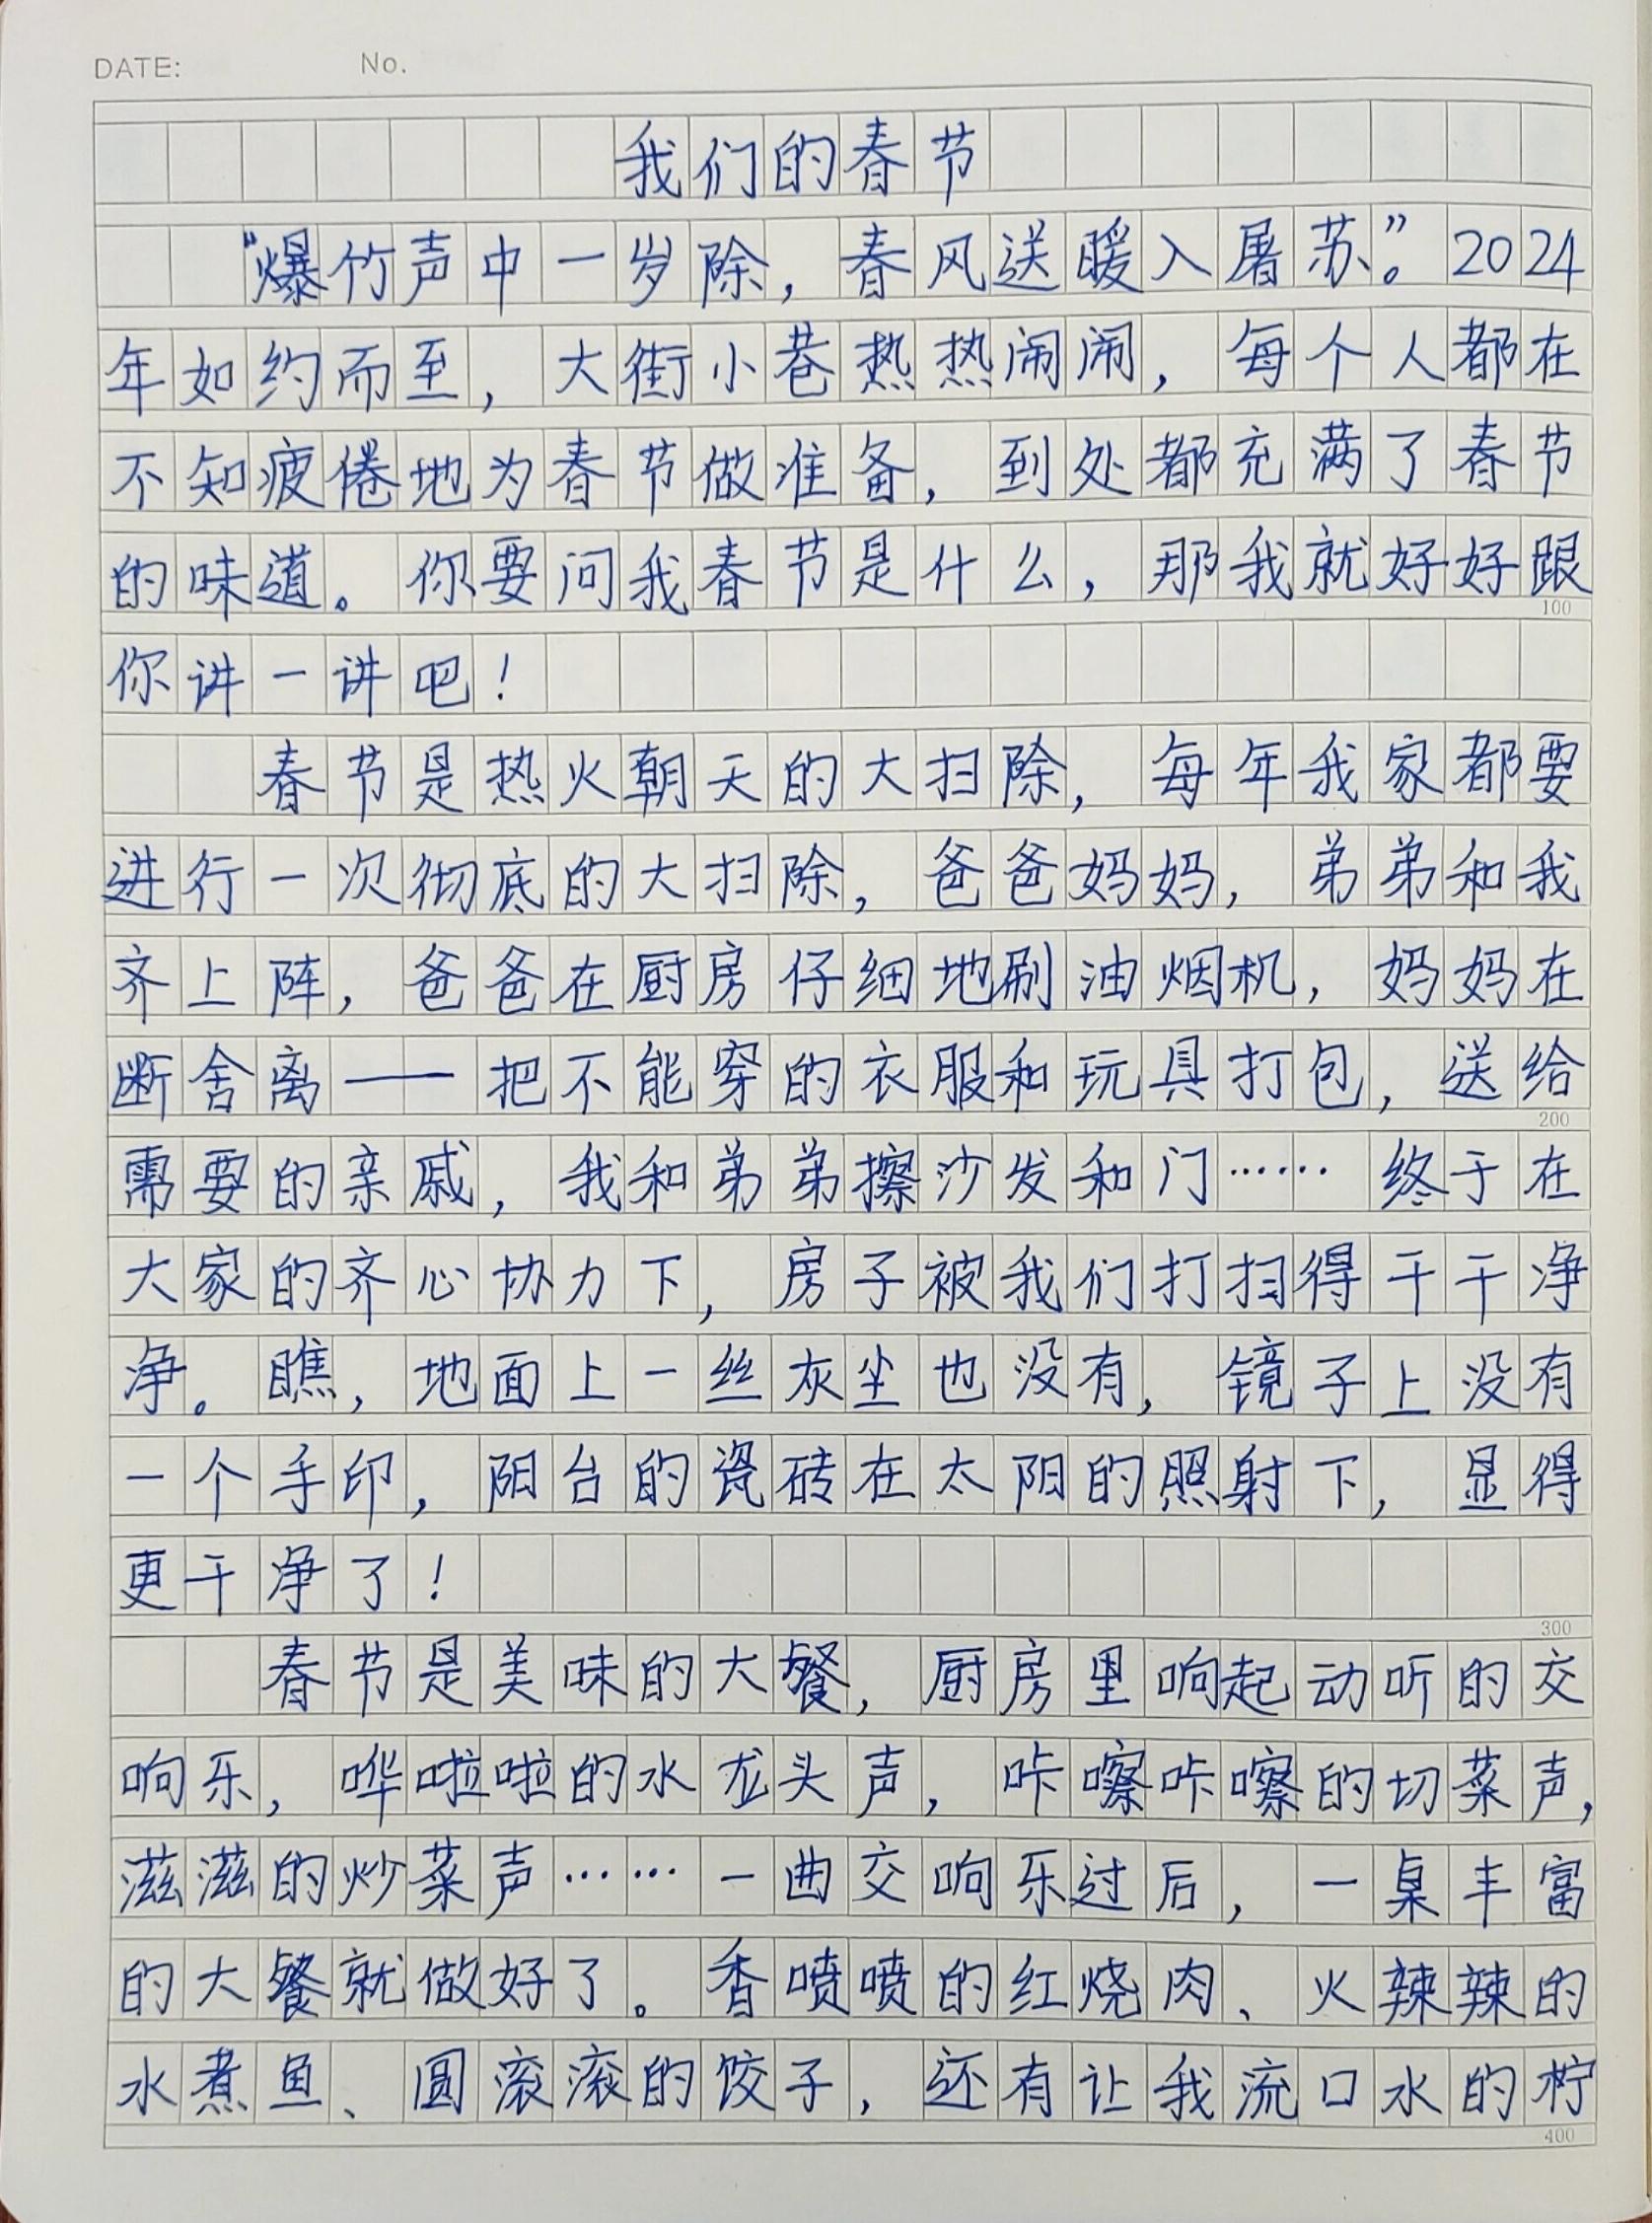 DATE: No.
我们的春节
“爆竹声中一岁除，春风送暖入屠苏。”2024
年如约而至，大街小巷热热闹闹，每个人都在
不知疲倦地为春节做准备，到处都充满了春节
的味道。你要问我春节是什么，那我就好好跟
100
你讲一讲吧！
春节是热火朝天的大扫除，每年我家都要
进行一次彻底的大扫除，爸爸妈妈，弟弟和我
齐上阵，爸爸在厨房仔细地刷油烟机，妈妈在
断舍离——把不能穿的衣服和玩具打包，送给
200
需要的亲戚，我和弟弟擦沙发和门……终于在
大家的齐心协力下，房子被我们打扫得干干净
净。瞧，地面上一丝灰尘也没有，镜子上没有
一个手印，阳台的瓷砖在太阳的照射下，显得
更干净了！
300
春节是美味的大餐，厨房里响起动听的交
响乐，哗啦啦的水龙头声，咔嚓咔嚓的切菜声，
滋滋的炒菜声……一曲交响乐过后，一桌丰富
的大餐就做好了。香喷喷的红烧肉、火辣辣的
水煮鱼、圆滚滚的饺子，还有让我流口水的柠
400